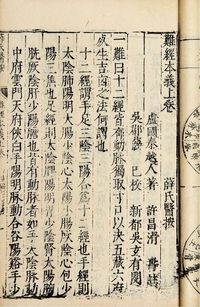 難經本義上卷 薛氏醫按
盧國秦越人著 許昌滑壽註
吳郡薛己校 新都吳玄有閱
一難曰十二經皆有動脉獨取寸口以決五藏六府
死生吉凶之法何謂也
十二經謂手足三陰三陽合為十二經也手經則
太陰肺陽明大腸少陰心太陽小腸厥陰心包少
陽三焦也足經則太陰脾陽明胃少陰腎太陽膀
胱厥陰肝少陽膽也皆有動脉者如手太陰脉動
中府雲門天府俠白手陽明脉動合谷陽谿手少